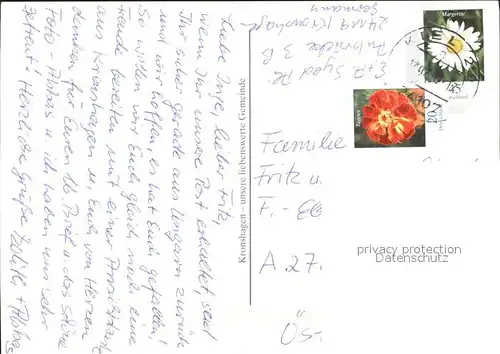 Liebe Inge, lieber Fritz,
wenn Ihr unsere Post erhaltet, seid
Ihr sicher gerade aus Ungarn zurück
und wir hoffen es hat Euch gefallen!
So wollen wir Euch gleich noch eine
Freude bereiten mit einer Ansichtskarte
aus Kronshagen u. Euch von Herzen
danken für Euren lb. Brief u. das schöne
Foto - Abbas u. ich haben uns sehr
gefreut! Herzliche Grüße
Kronshagen - unsere liebenswerte Gemeinde
24119 Kronshagen
Germany
Margerite
45
Deutschland
Tagetes
Familie
Fritz u.
F.-
A 27.
Ös-
privacy protection
Datenschutz